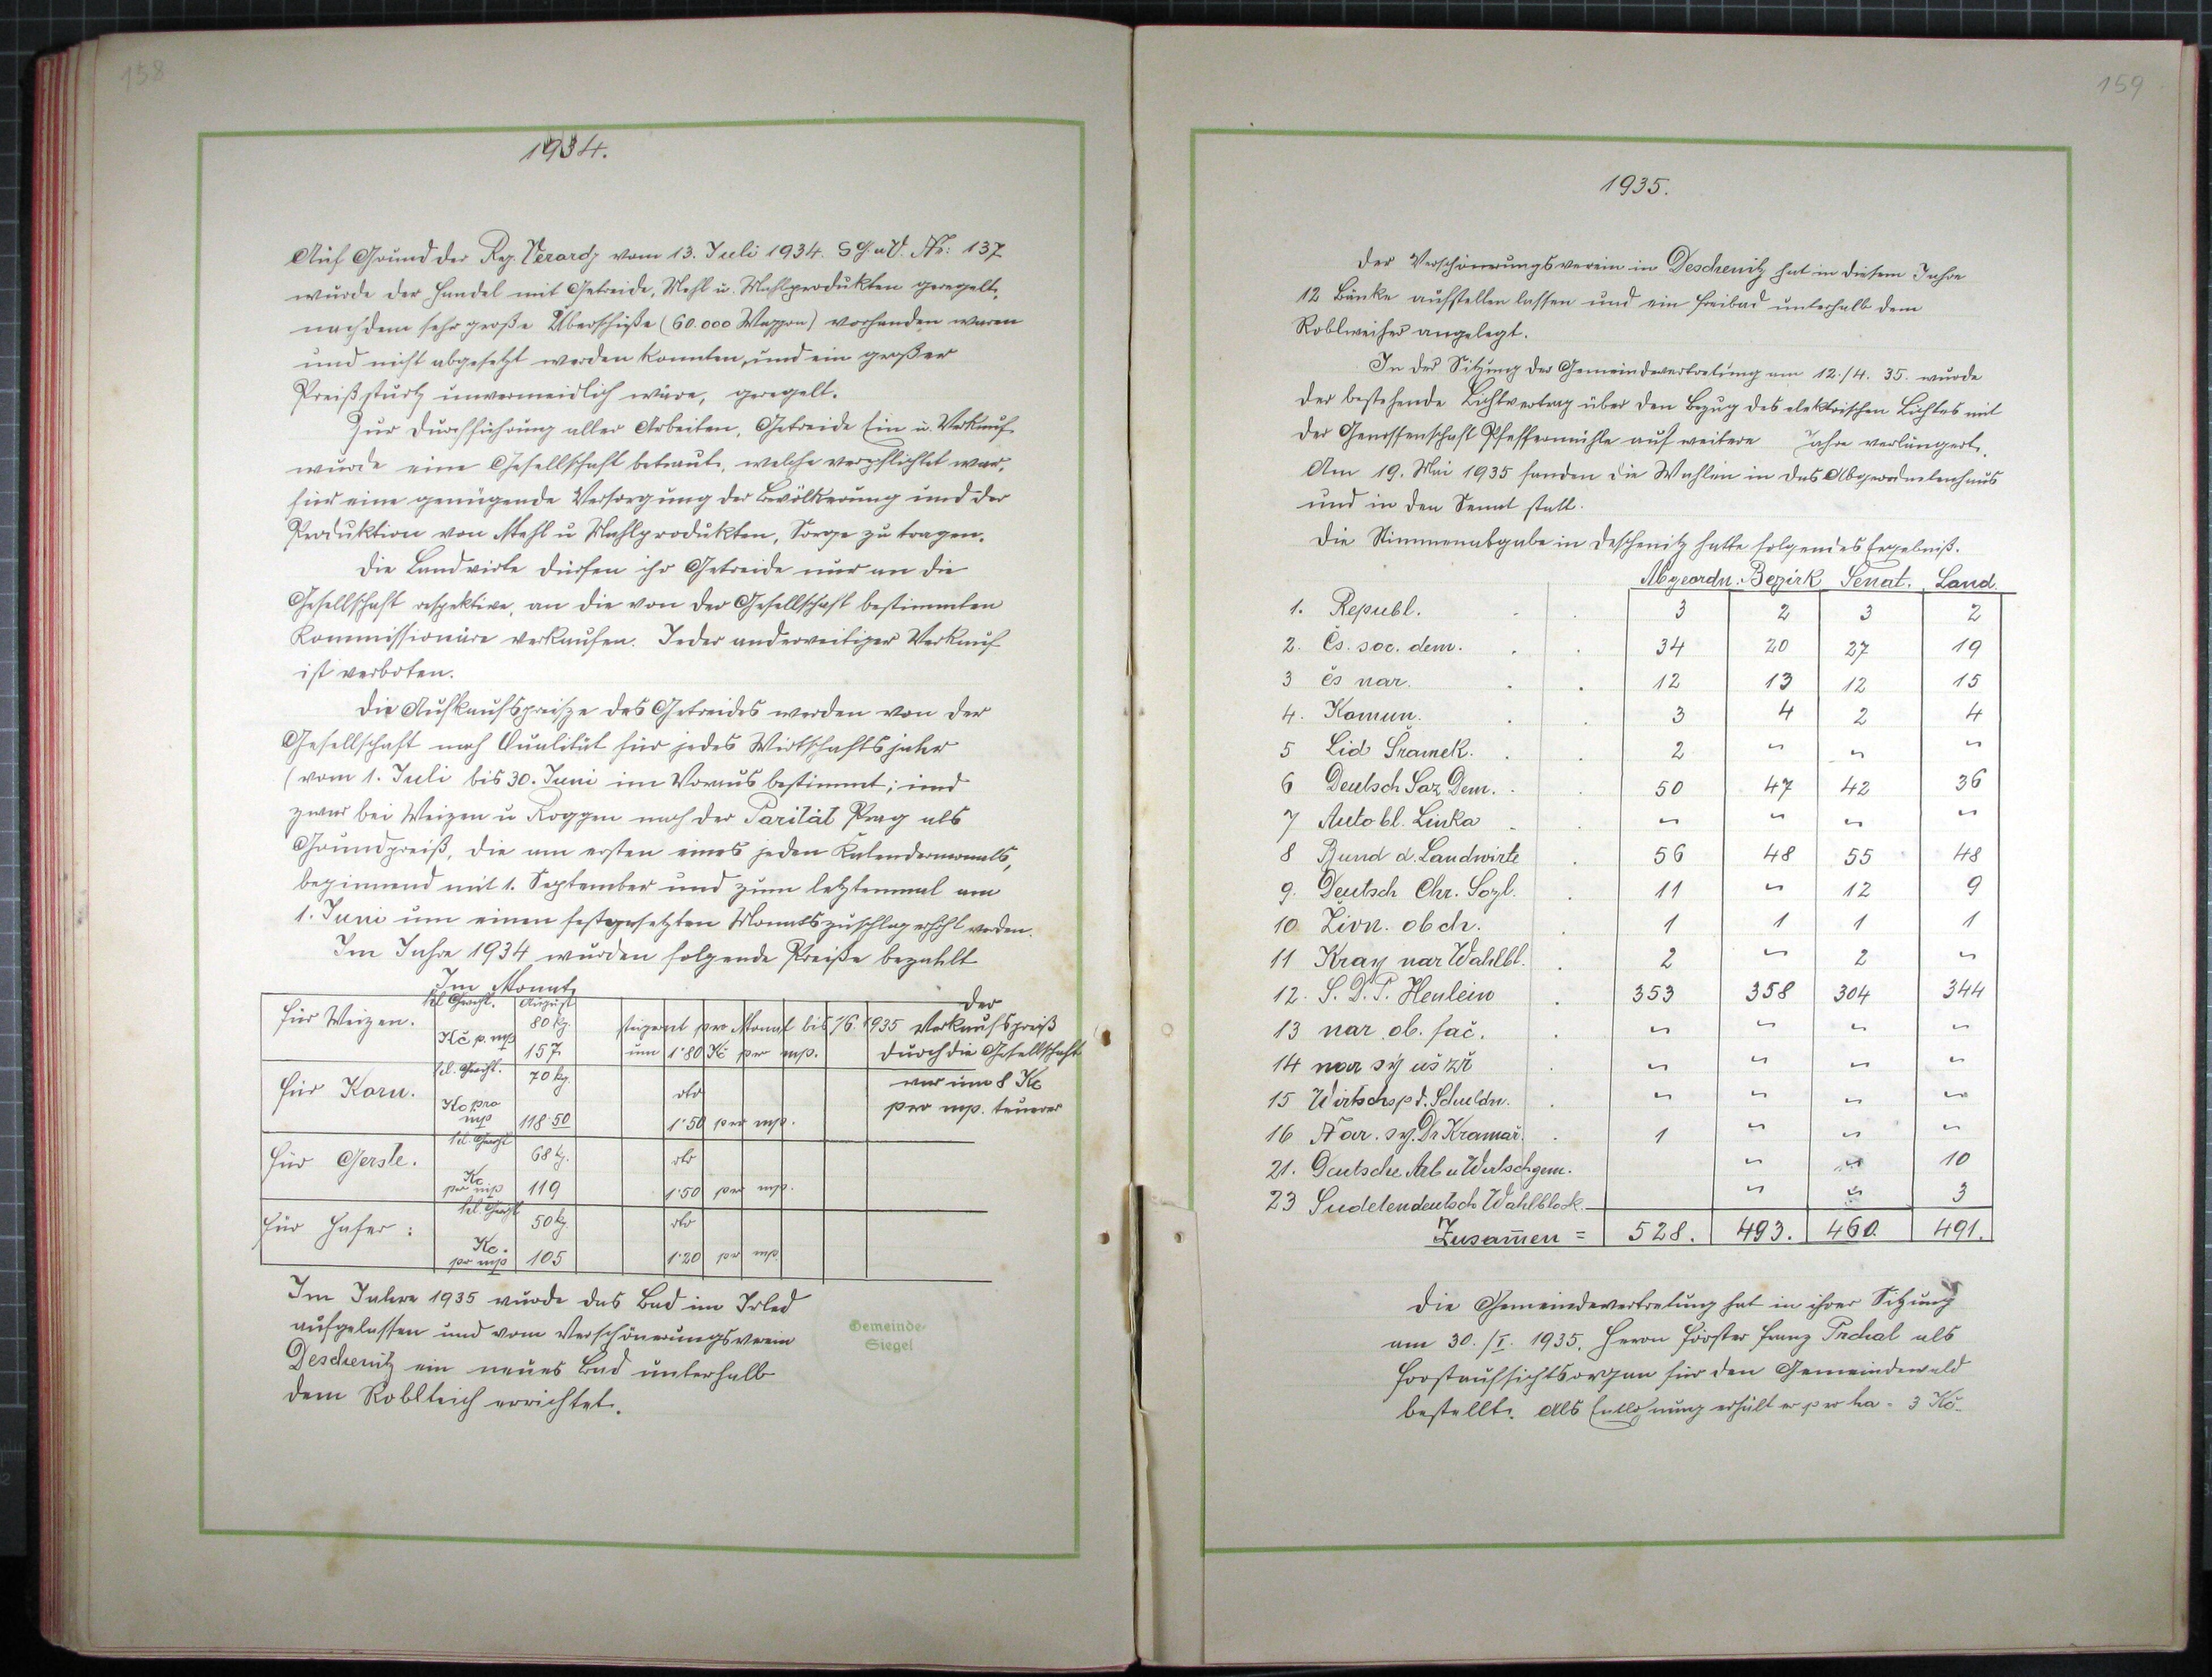 158
1934.
Auf Grund der Reg. Verordg vom 13. Juli 1934. S G. u V. Nr: 137
wurde der Handel mit Getreide, Mehl u. Mahlprodukten geregelt,
nachdem sehr große Überschüße (60.000 Waggon) vorhanden waren
und nicht abgesetzt werden konnten, und ein großer
Preißsturtz unvermeidlich wäre, geregelt.
Zur Durchführung aller Arbeiten, Getreide Ein u. Verkauf
wurde eine Gesellschaft betraut, welche verpflichtet war,
für eine genügende Versorgung der Bevölkerung und der
Produktion von Mehl u Mahlprodukten, Sorge zu tragen.
Die Landwirte dürfen ihr Getreide nur an die
Gesellschaft respektive, an die von der Gesellschaft bestimmten
Kommissionäre verkaufen. Jeder anderweitiger Verkauf
ist verboten.
Die Aufkaufspreise des Getreides werden von der
Gesellschaft nach Qualität für jedes Wirtschaftsjahr
(vom 1. Juli bis 30. Juni im Voraus bestimmt; und
zwar bei Weizen u Roggen nach der Parität Prag als
Grundpreiß, die am ersten eines jeden Kalendermonats,
beginnend mit 1. September und zum letztenmal am
1. Juni um einen festgesetzten Monatszuschlag erhöht werden.
Im Jahre 1934 wurden folgende Preiße bezahlt
Im Monat
für Weizen. hl. Gewicht. August 80 kg. steigernt pro Monat bis 1/6. 1935 Der Verkaufspreiß
Kč p. mp 157 um 1·80 Kč per mp. durch die Gesellschaft
für Korn. hl. Gewicht. 70 kg. dto war um 8 Kc
Kc pro mp 118·50 1·50 per mp. per mp. teuerer
für Gerste. hl. Gewicht 68 kg. dto
Kc per mp 119 1·50 per mp.
für Hafer: hl. Gewicht 50 kg. dto
Kc. per mp 105 1·20 per mp.
Im Jahre 1935 wurde das Bad im
aufgelassen und vom Verschönerungsverein
Deschenitz ein neues Bad unterhalb
dem Roblteich errichtet.
Gemeinde-
Siegel
159
1935.
Der Verschönerungsverein in Deschenitz hat in diesem Jahre
12 Bänke aufstellen lassen und ein Freibad unterhalb dem
Roblweiher angelegt.
In der Sitzung der Gemeindevertretung am 12./4. 35. wurde
der bestehende Lichtvertrag über den Bezug des elektrischen Lichtes mit
der Genossenschaft Pfeffermühle auf weitere Jahre verlängert.
Am 19. Mai 1935 fanden die Wahlen in das Abgeordnetenhaus
und in den Senat statt.
Die Stimmenabgabe in Deschenitz hatte folgendes Ergebniß.
Abgeordn. Bezirk Senat. Land.
1. Republ. 3 2 3 2
2. Čs. soc. dem. 34 20 27 19
3 čs nar. 12 13 12 15
4. Komun. 3 4 2 4
5 Lid Šramek. 2 " " "
6 Deutsch Soz Dem. 50 47 42 36
7 Autobl. Linka " " " "
8 Bund d. Landwirte 56 48 55 48
9. Deutsch Chr. Sozl. 11 " 12 9
10 Živn. obch. 1 1 1 1
11 Kray nar Wahlbl. 2 " 2 "
12. S. D. P. Henlein 353 358 304 344
13 nar. ob. fač. " " " "
14 nar sy " " " "
15 Wirtschsp d. Schuldn. " " " "
16 Nar. sy. Dr Kramař. 1 " " "
21. Deutsche Arb u Wirtschgem. " " 10
23 Sudetendeutsch Wahlblock. " " 3
Zusam̅en = 528. 493. 460. 491.
Die Gemeindevertretung hat in ihrer Sitzung
am 30./I. 1935. Herrn Förster Franz Prchal als
Forstaufsichtsorgan für den Gemeindewald
bestellt. Als Entlohnung erhält er per ha = 3 Kč.